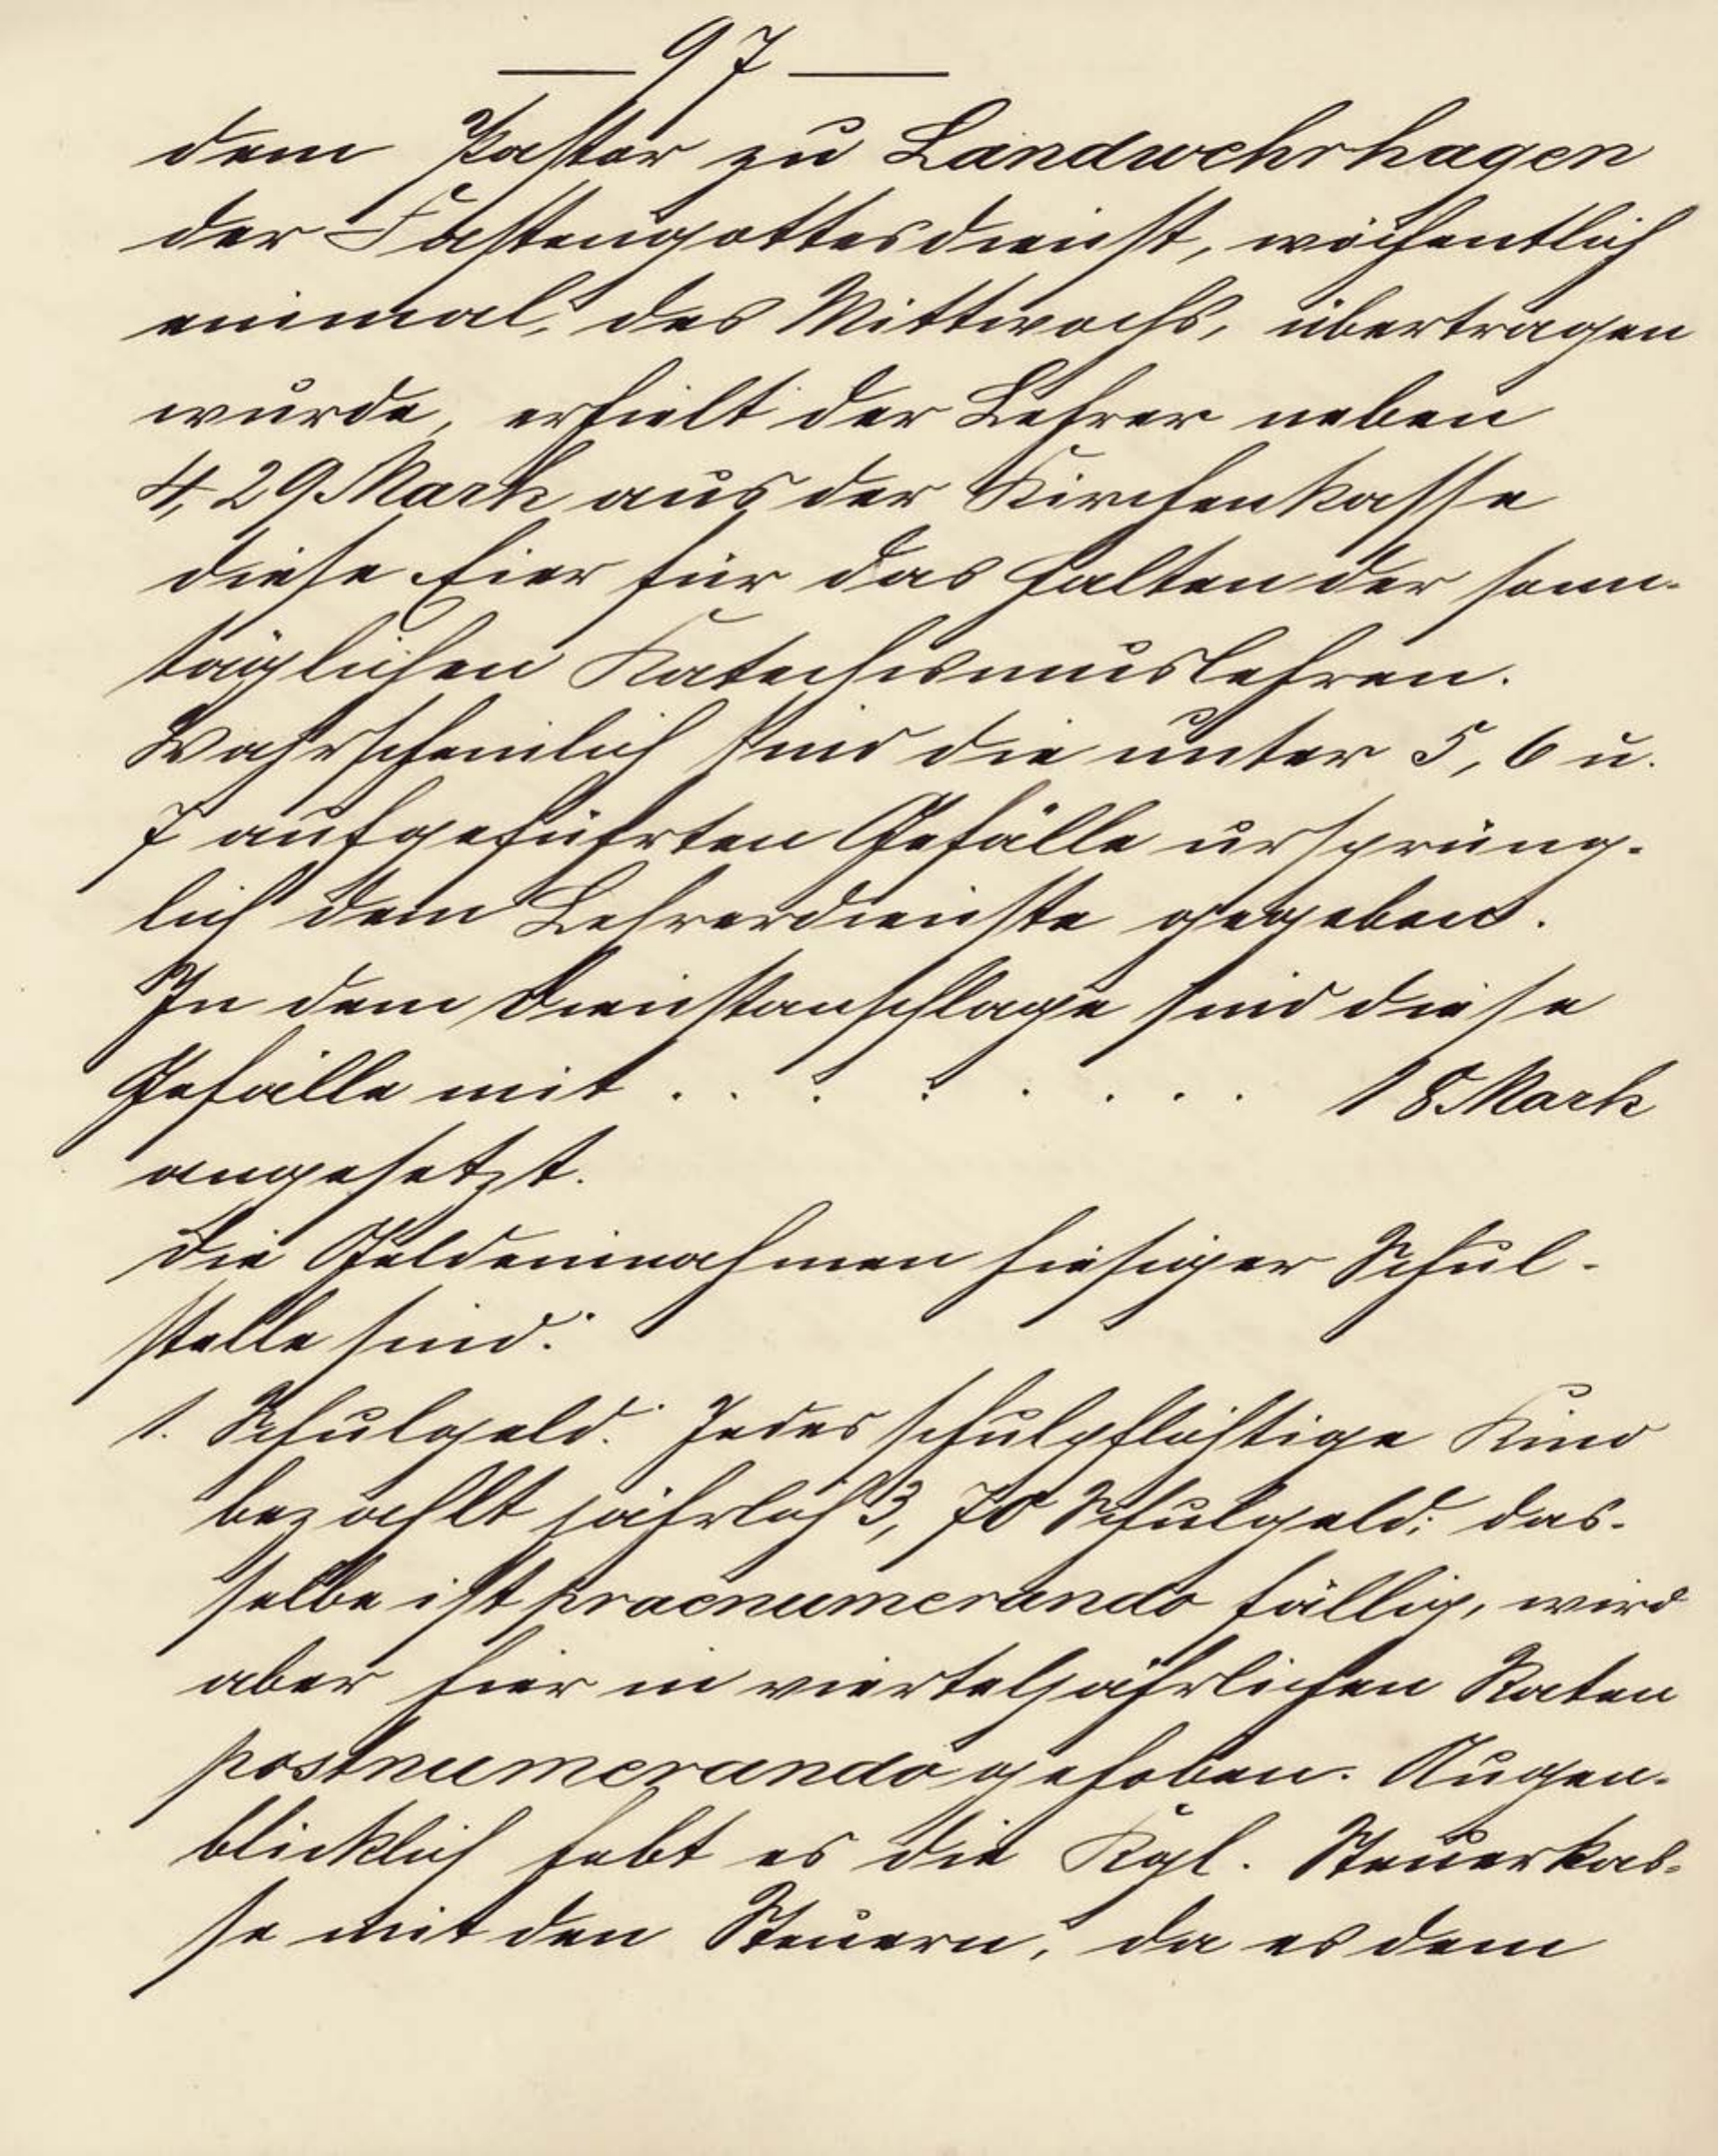 — 97 —
dem Pastor zu Landwehrhagen
der Fastengottesdienst, wöchentlich
einmal, des Mittwochs, übertragen
wurde, erhielt der Lehrer neben
4,29 Mark aus der Kirchenkasse
diese Eier für das Halten der sonn-
täglichen Katechismuslehren.
Wahrscheinlich sind die unter 5, 6 u.
7 aufgeführten Gefälle ursprüng-
lich dem Lehrerdienste gegeben.
In dem Dienstanschlage sind diese
Gefälle mit . . . . . . . . 18 Mark
angesetzt.
Die Geldeinnahmen hiesiger Schul-
stelle sind:
1. Schulgeld. Jedes schulpflichtige Kind
bezahlt jährlich 3,70 Schulgeld; das-
selbe ist praenumerando fällig, wird
aber hier in vierteljährlichen Raten
postnumerando gehoben. Augen-
blicklich hebt es die Kgl. Steuerkas-
se mit den Steuern, da es dem